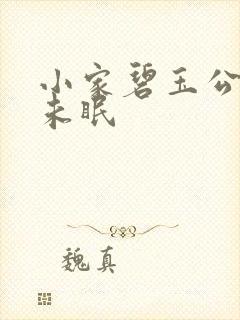 小家碧玉公
未眠
魏真